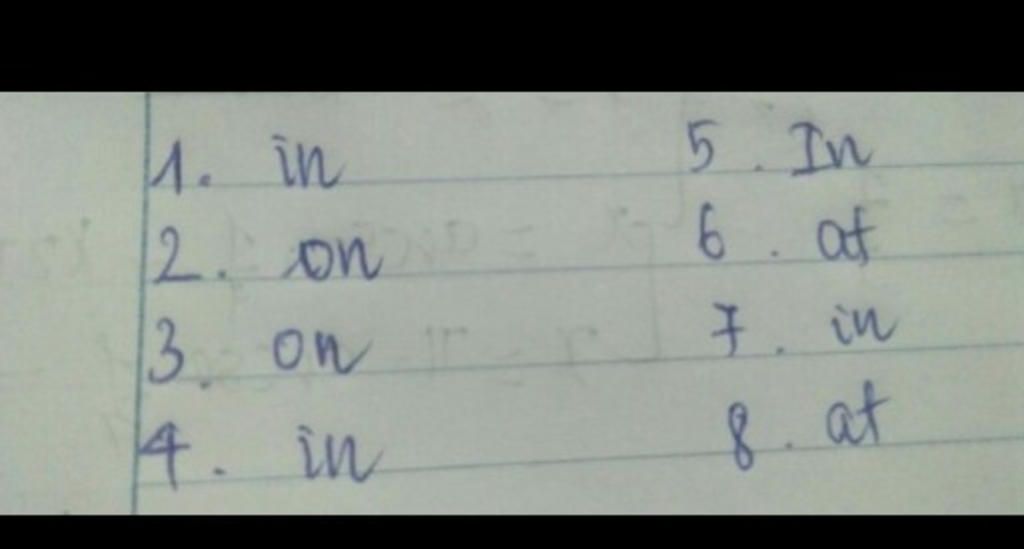 1. in
2. on
3. on
4. in
5. In
6. at
7. in
8. at